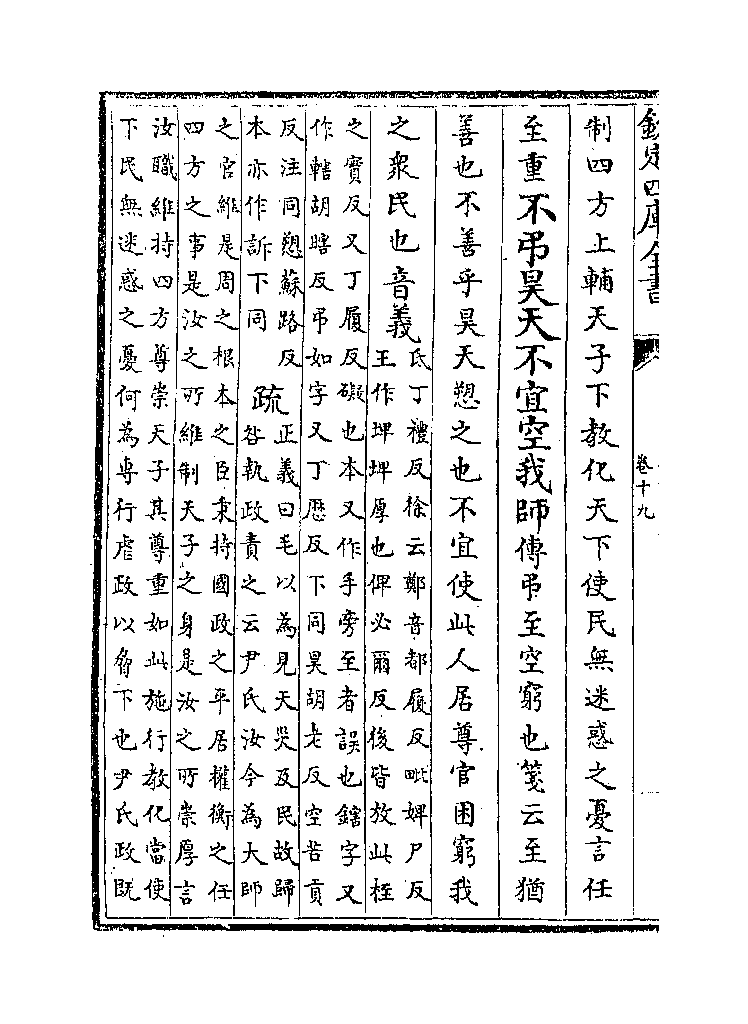 欽定四庫全書
卷十九
制四方上輔天子下教化天下使民無迷惑之憂言任
至重不弔昊天不宜空我師傳弔至空窮也箋云至猶
善也不善乎昊天愬之也不宜使此人居尊官困窮我
之衆民也音義
氐丁禮反徐云鄭音都履反毗婢尸反
王作埤埤厚也俾必爾反後皆放此桎
之實反又丁履反礙也本又作手旁至者誤也鎋字又
作轄胡瞎反弔如字又丁歷反下同昊胡老反空苦貢
反注同愬蘇路反
本亦作訴下同
疏
正義曰毛以為見天災及民故歸
咎執政責之云尹氏汝今為大師
之官維是周之根本之臣秉持國政之平居權衡之任
四方之事是汝之所維制天子之身是汝之所崇厚言
汝職維持四方尊崇天子其尊重如此施行教化當使
下民無迷惑之憂何為専行虐政以脅下也尹氏政既